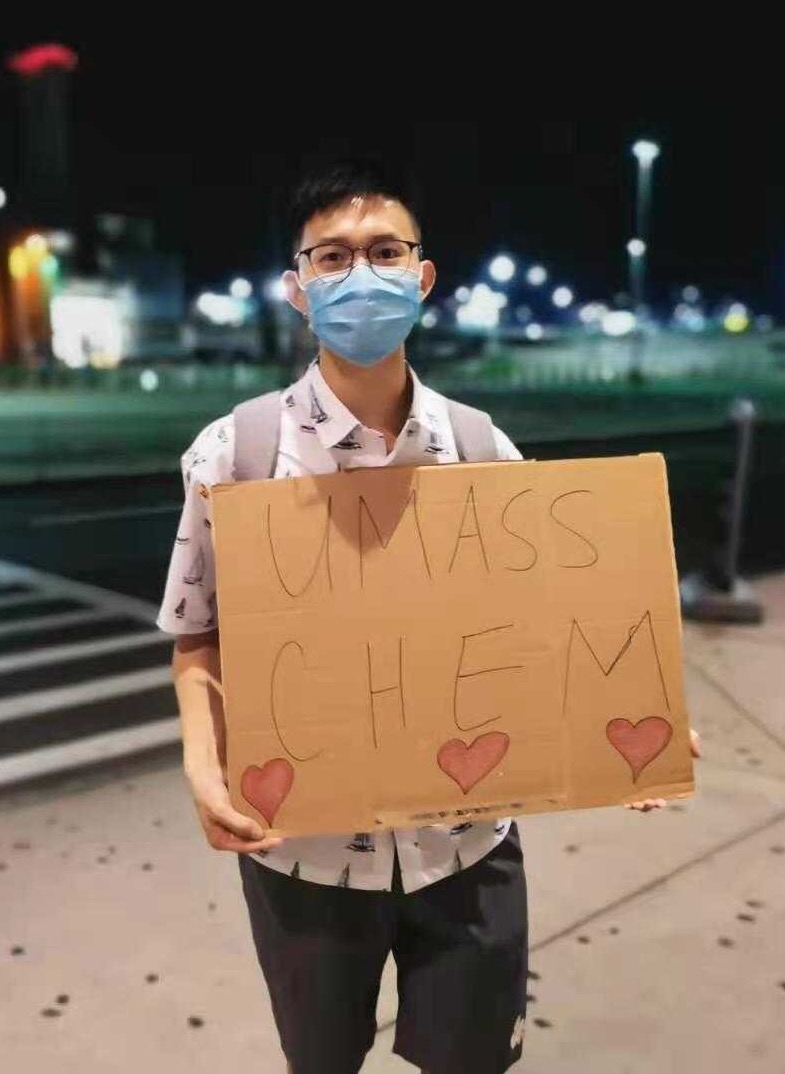 UMASS
CHEM